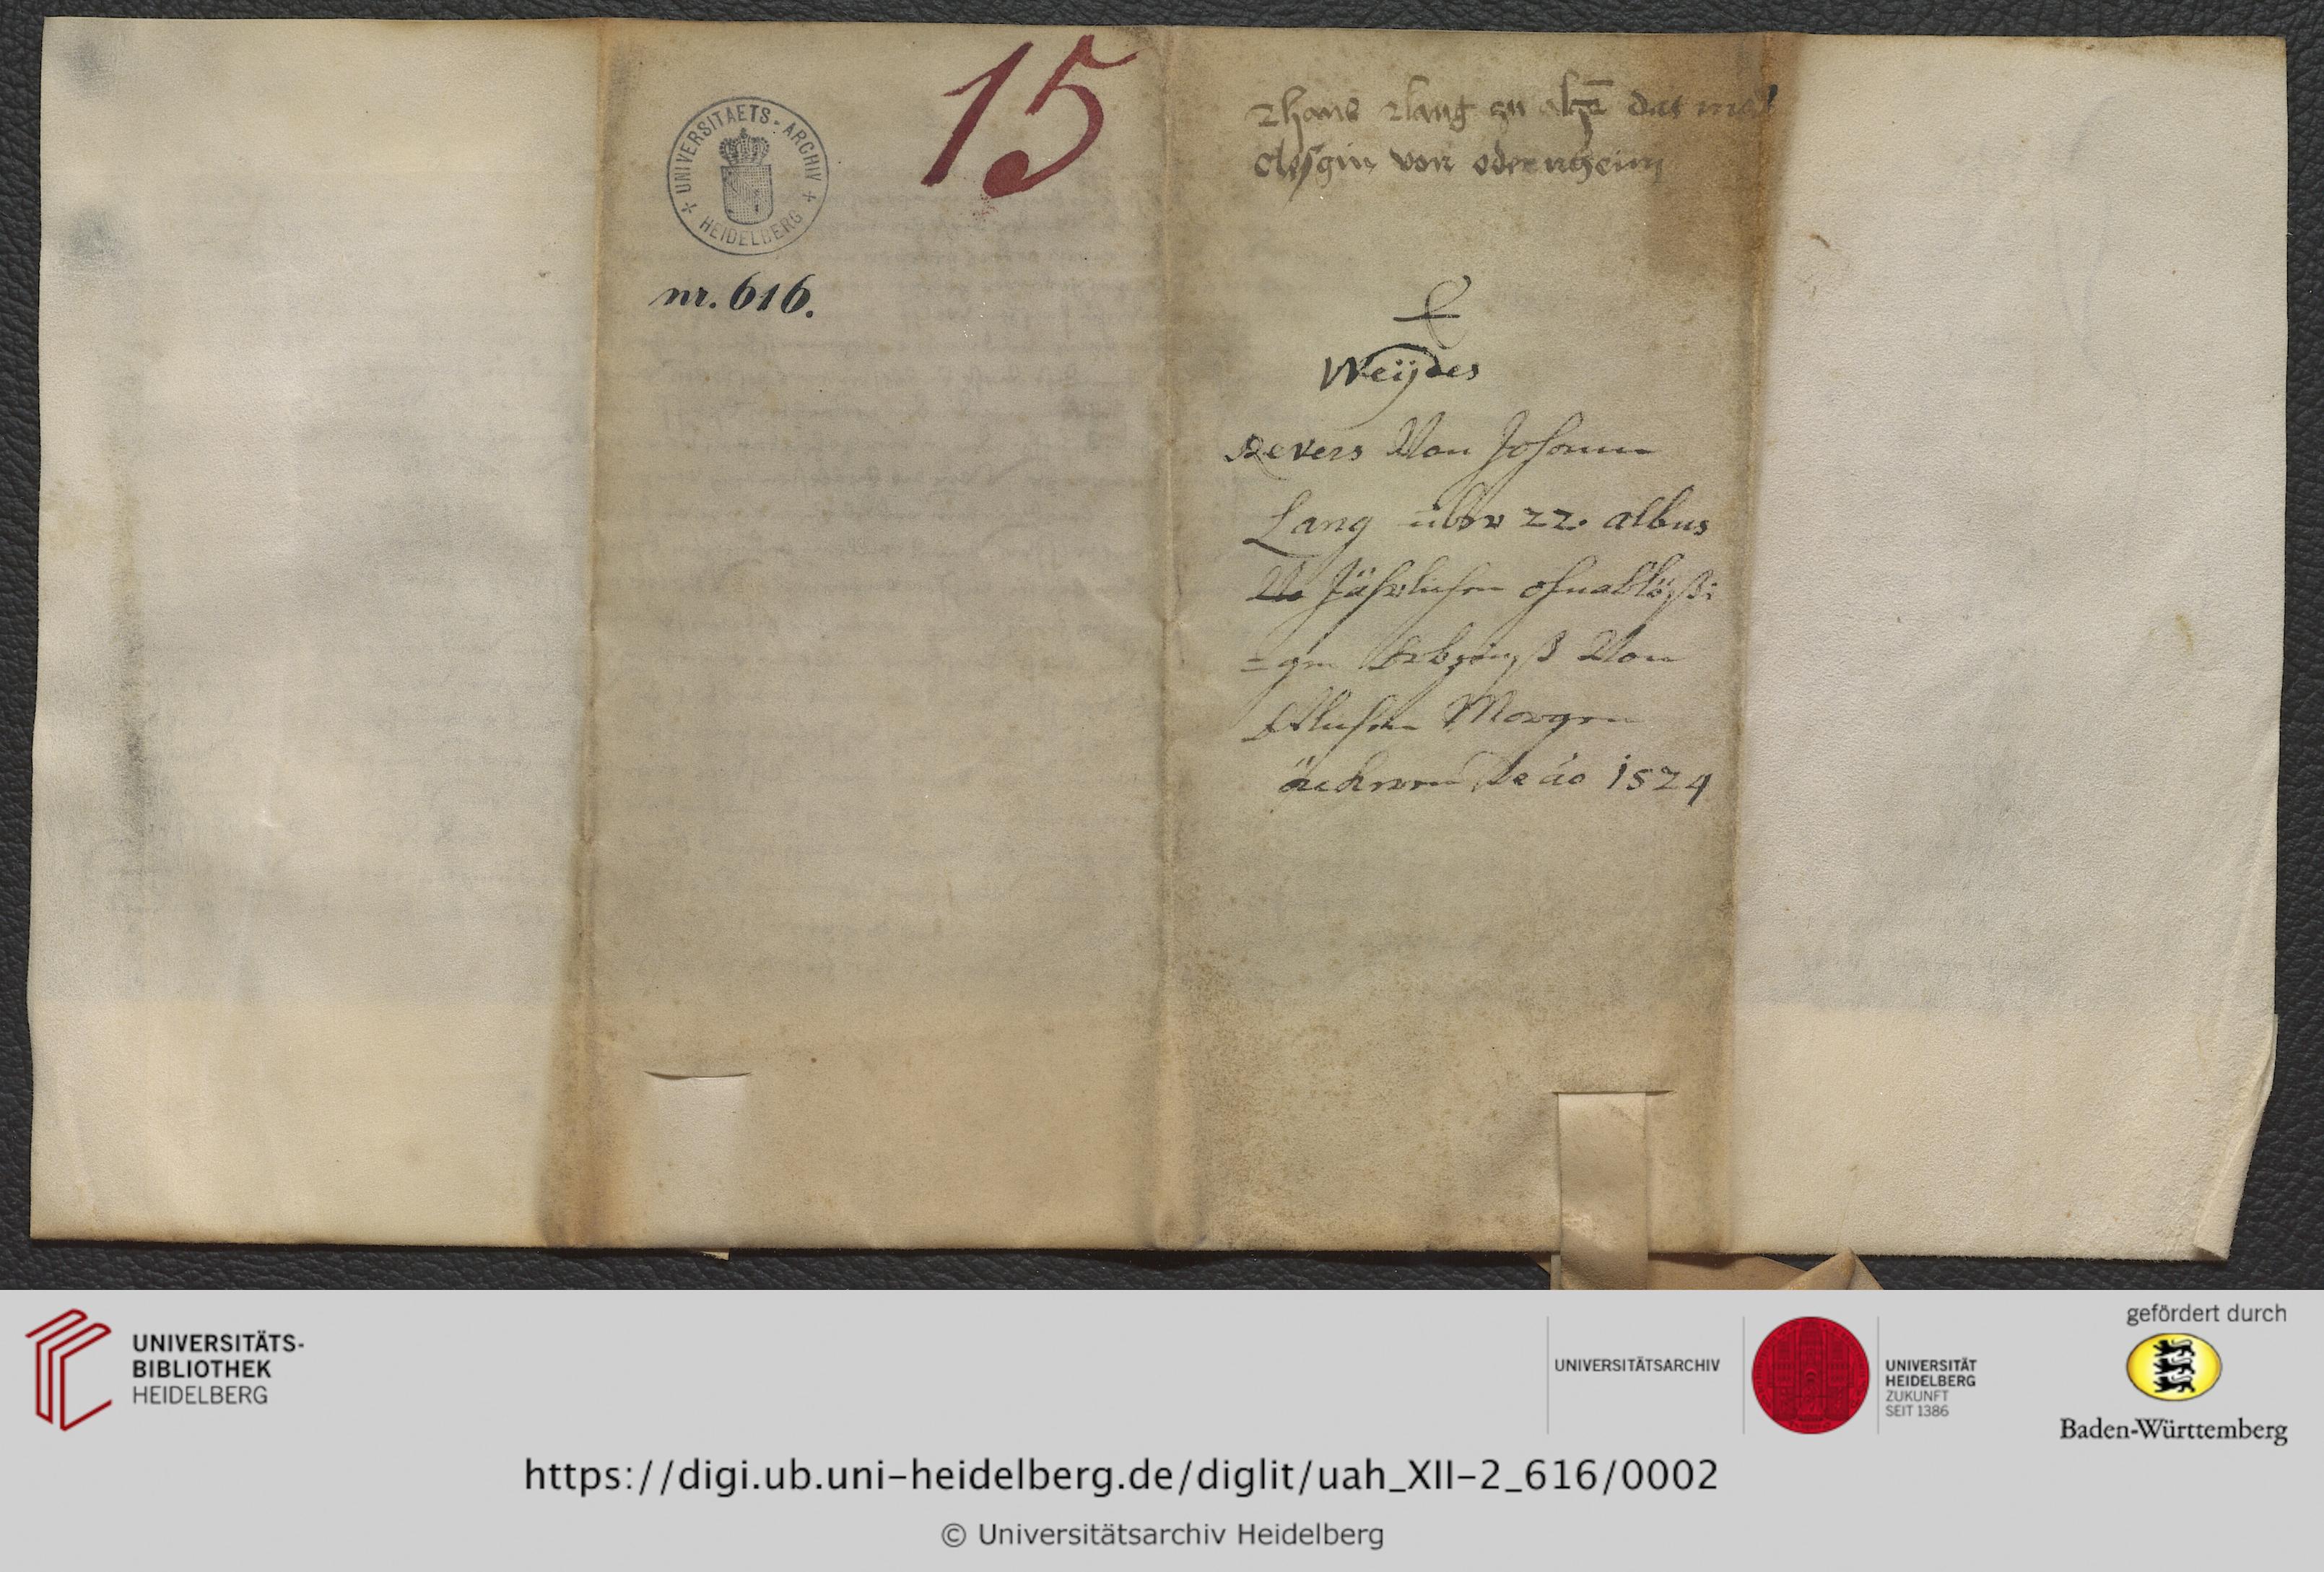 15
UNIVERSITAETS-ARCHIV
HEIDELBERG
nr. 616.
zu dat
von odernheim
Weÿdes
Revers Von Johann
Lang über 22. albus
Jährlichen ohnablößi-
=gen Erbzinß Von
Etlichen Morgen
äckeren de ao 1524
UNIVERSITÄTS-
BIBLIOTHEK
HEIDELBERG
UNIVERSITÄTSARCHIV
UNIVERSITÄT
HEIDELBERG
ZUKUNFT
SEIT 1386
gefördert durch
Baden-Württemberg
https://digi.ub.uni-heidelberg.de/diglit/uah_XII-2_616/0002
© Universitätsarchiv Heidelberg